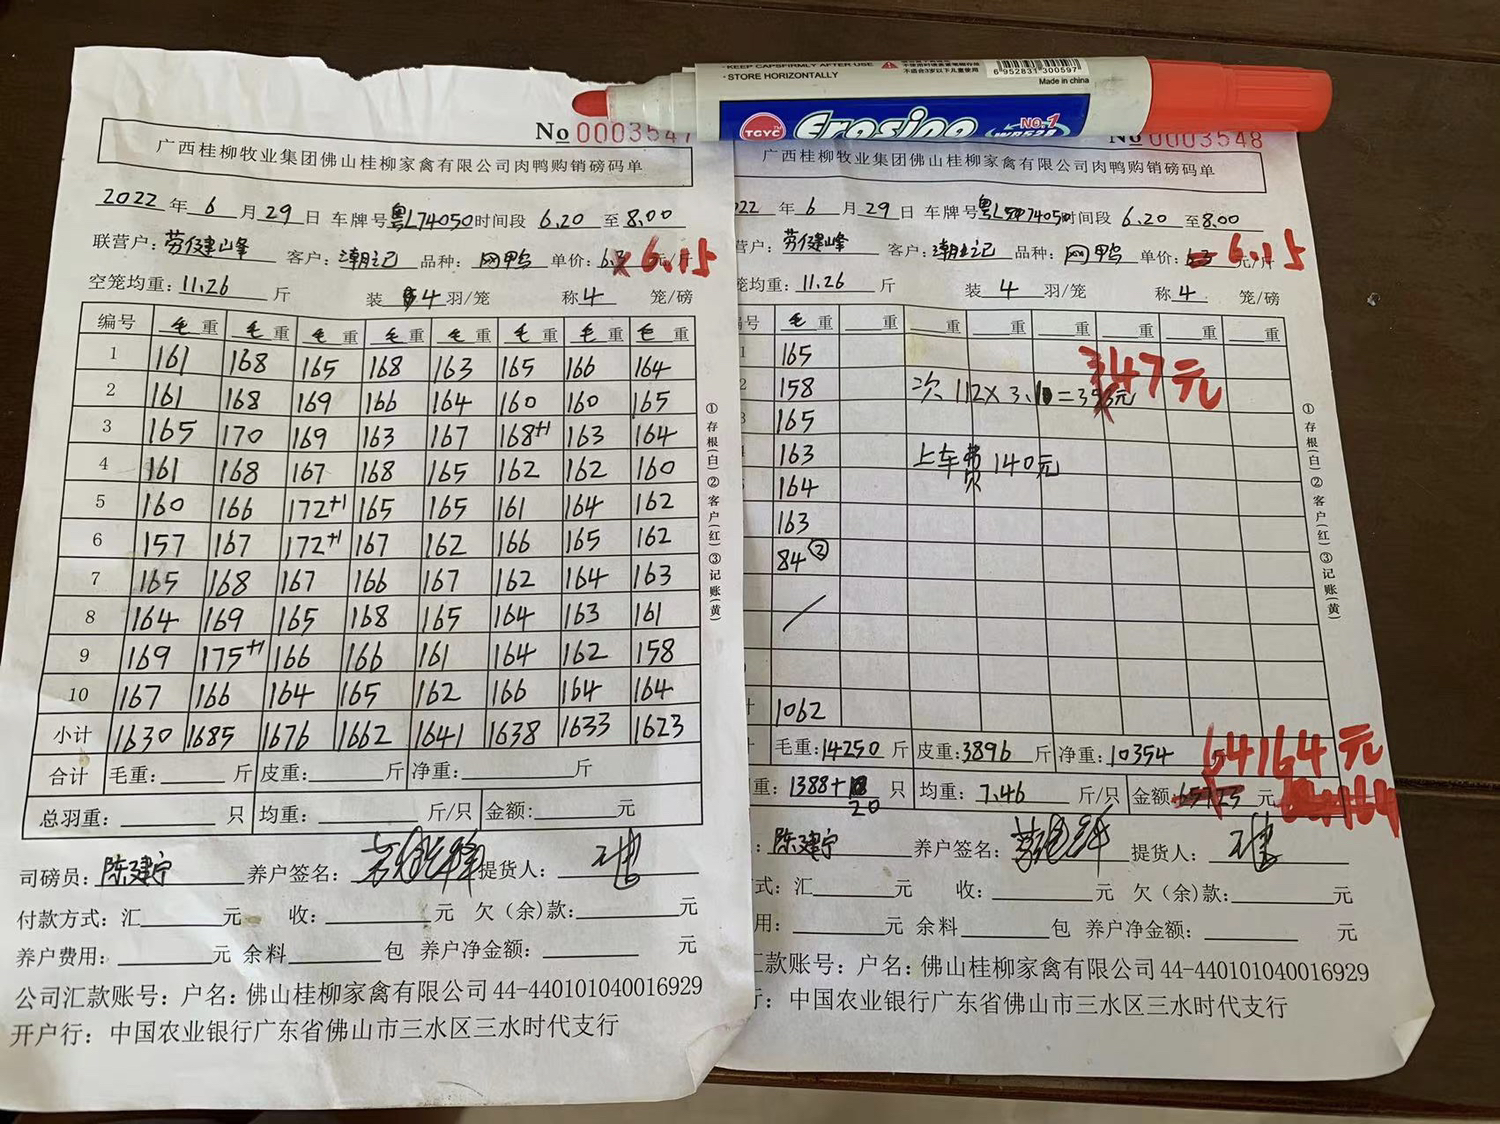 ·KEEP CAPSFIRMLY AFTER USE
·STORE HORIZONTALLY
6 952831 300597
Made in china
TGYC
Erasing
NO.1
No 0003547
广西桂柳牧业集团佛山桂柳家禽有限公司肉鸭购销磅码单
2022 年 6 月 29 日 车牌号 粤L74050 时间段 6.20 至 8.00
联营户: 劳健峰 客户: 潮记 品种: 网鸭 单价: 6.3 6.15 元/斤
空笼均重: 11.26 斤 装 4 羽/笼 称 4 笼/磅
编号 毛重 毛重 毛重 毛重 毛重 毛重 毛重 毛重
1 161 168 165 168 163 165 166 164
2 161 168 169 166 164 160 160 165
3 165 170 169 163 167 168+1 163 164
4 161 168 167 168 165 162 162 160
5 160 166 172+1 165 165 161 164 162
6 157 167 172+1 167 162 166 165 162
7 165 168 167 166 167 162 164 163
8 164 169 165 168 165 164 163 161
9 169 175+1 166 166 161 164 162 158
10 167 166 164 165 162 166 164 164
小计 1630 1685 1676 1662 1641 1638 1633 1623
合计 毛重: 斤 皮重: 斤 净重: 斤
总羽重: 只 均重: 斤/只 金额: 元
司磅员: 陈建宁 养户签名: 提货人:
付款方式: 汇 元 收: 元 欠(余)款: 元
养户费用: 元 余料 包 养户净金额: 元
公司汇款账号: 户名: 佛山桂柳家禽有限公司 44-440101040016929
开户行: 中国农业银行广东省佛山市三水区三水时代支行
①存根(白)②客户(红)③记账(黄)
No 0003548
广西桂柳牧业集团佛山桂柳家禽有限公司肉鸭购销磅码单
22 年 6 月 29 日 车牌号 粤L74050 时间段 6.20 至 8.00
营户: 劳健峰 客户: 潮记 品种: 网鸭 单价: 6.3 6.15 元/斤
笼均重: 11.26 斤 装 4 羽/笼 称 4 笼/磅
号 毛重 重 重 重 重 重 重 重
165
158 次 112×3.10=元 347元
165
163 上车费 140元
164
163
84②
1062
毛重: 14250 斤 皮重: 3896 斤 净重: 10354 64164元
重: 1388+20 只 均重: 7.46 斤/只 金额: 元
: 陈建宁 养户签名: 提货人:
式: 汇 元 收: 元 欠(余)款: 元
用: 元 余料 包 养户净金额: 元
汇款账号: 户名: 佛山桂柳家禽有限公司 44-440101040016929
行: 中国农业银行广东省佛山市三水区三水时代支行
①存根(白)②客户(红)③记账(黄)